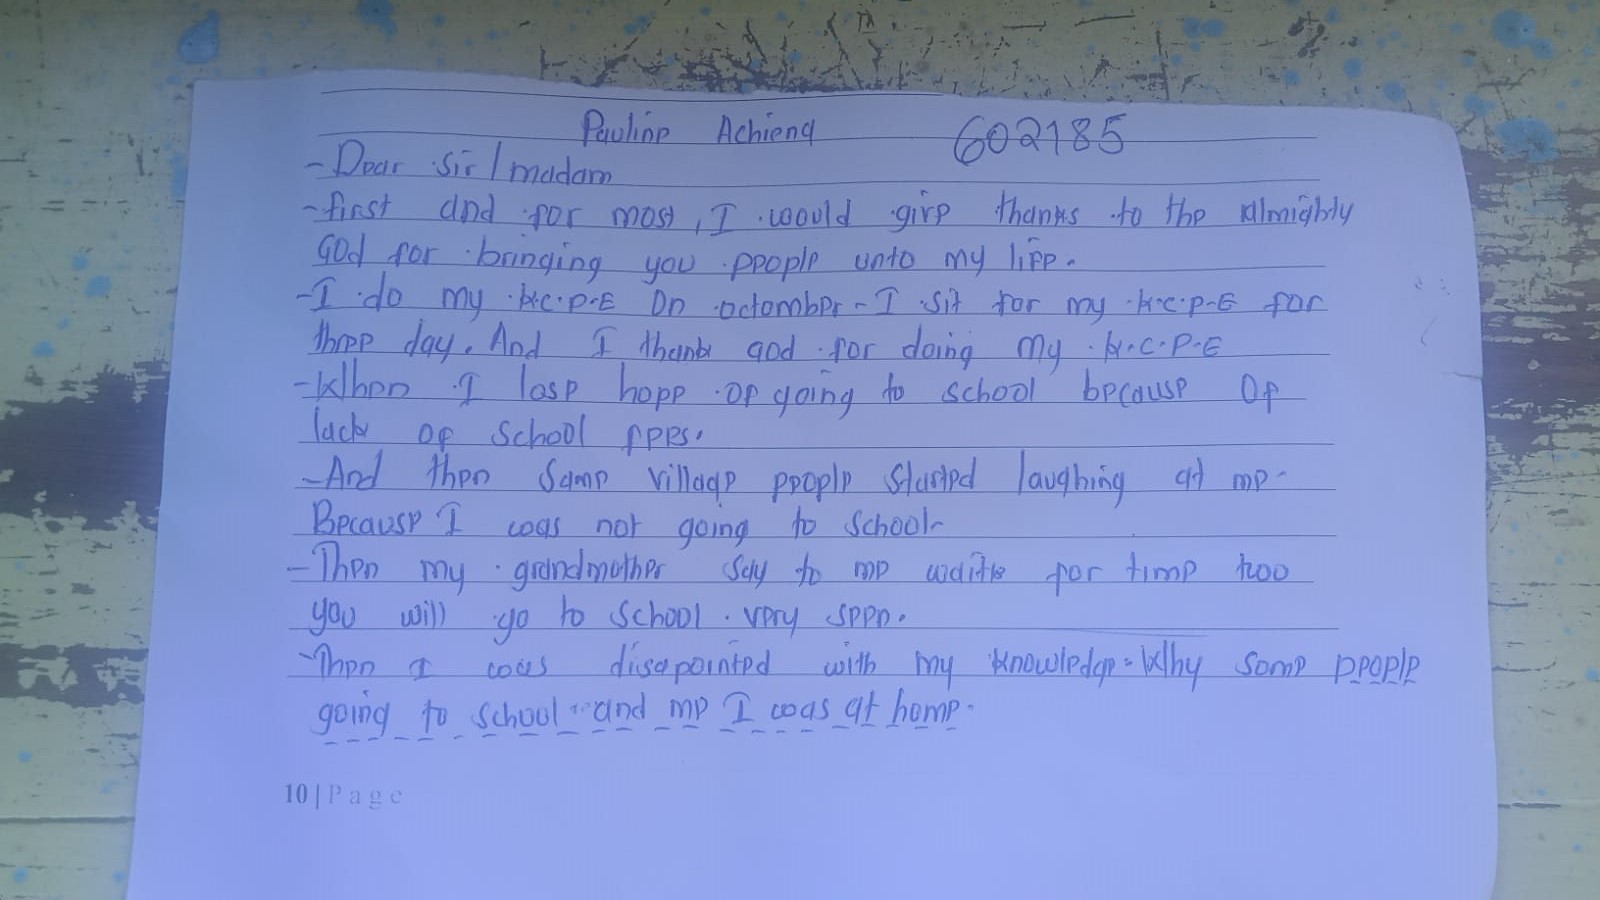 Pauline Achieng 602185
- Dear Sir / madam
- first and for most, I would give thanks to the almighty
God for bringing you people unto my life.
- I do my K.C.P.E On octomber - I sit for my K.C.P.E for
three day. And I thank god for doing my K.C.P.E
- When I lose hope of going to school because of
lack of school fees.
- And then some village people started laughing at me.
Because I was not going to school.
- Then my grandmother say to me waits for time too
you will go to school very seen.
- Then I was disapointed with my knowledge. Why some people
going to school and me I was at home.
10 | Page